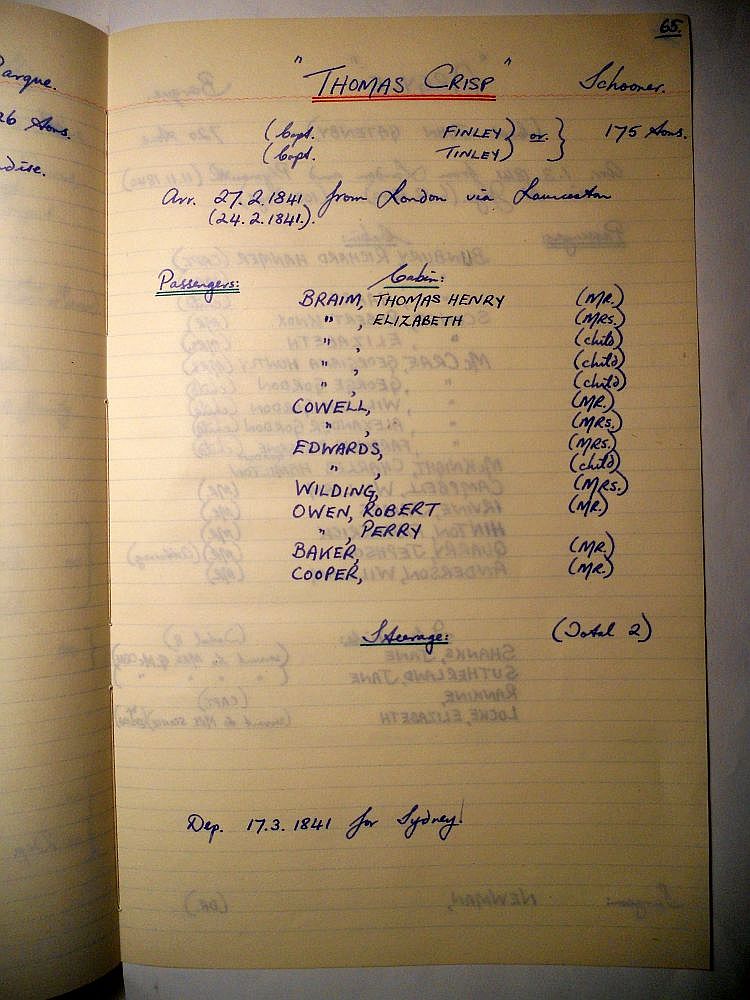 65.
" THOMAS CRISP " Schooner.
(Capt. FINLEY) or } 175 tons.
(Capt. TINLEY)
Arr. 27.2.1841 from London via Launceston
(24.2.1841).
Passengers: Cabin:
BRAIM, THOMAS HENRY (MR.)
" , ELIZABETH (MRS.)
" , (child)
" , (child)
" , (child)
COWELL, (MR.)
" , (MRS.)
EDWARDS, (MRS.)
" , (child)
WILDING, (MRS.)
OWEN, ROBERT (MR.)
" , PERRY
BAKER, (MR.)
COOPER, (MR.)
Steerage: (Total 2)
Dep. 17.3.1841 for Sydney.
Barque.
26 tons.